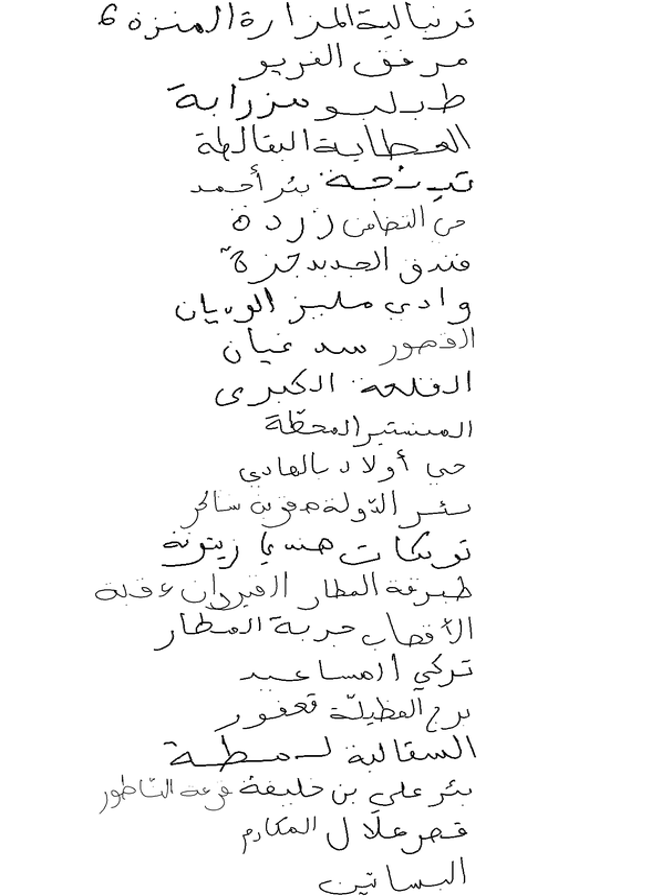 ترنبالية المزارة المنزه 6
مرفق الفريو
طبلبو مزرابة
العطاية البقالطة
تبرنجة بئر أحمد
حي التضامن زردة
فندق الجديد تيزة
وادي مليز الوديان
القصور سد غيان
القلعة الكبرى
المنستير المحطّة
حي أولاد بالهادي
بئر الدّولة صقر بن سالخ
تونكات هنديا زيتونة
طبرقة المطار القيروان عقبة
الأقصاب جربة المطار
تركي المساعيد
برج الفظيلة قعفور
السقالبة لمطة
بئر علي بن خليفة قرعة النّاطور
قصر علّال المكارم
البساتين